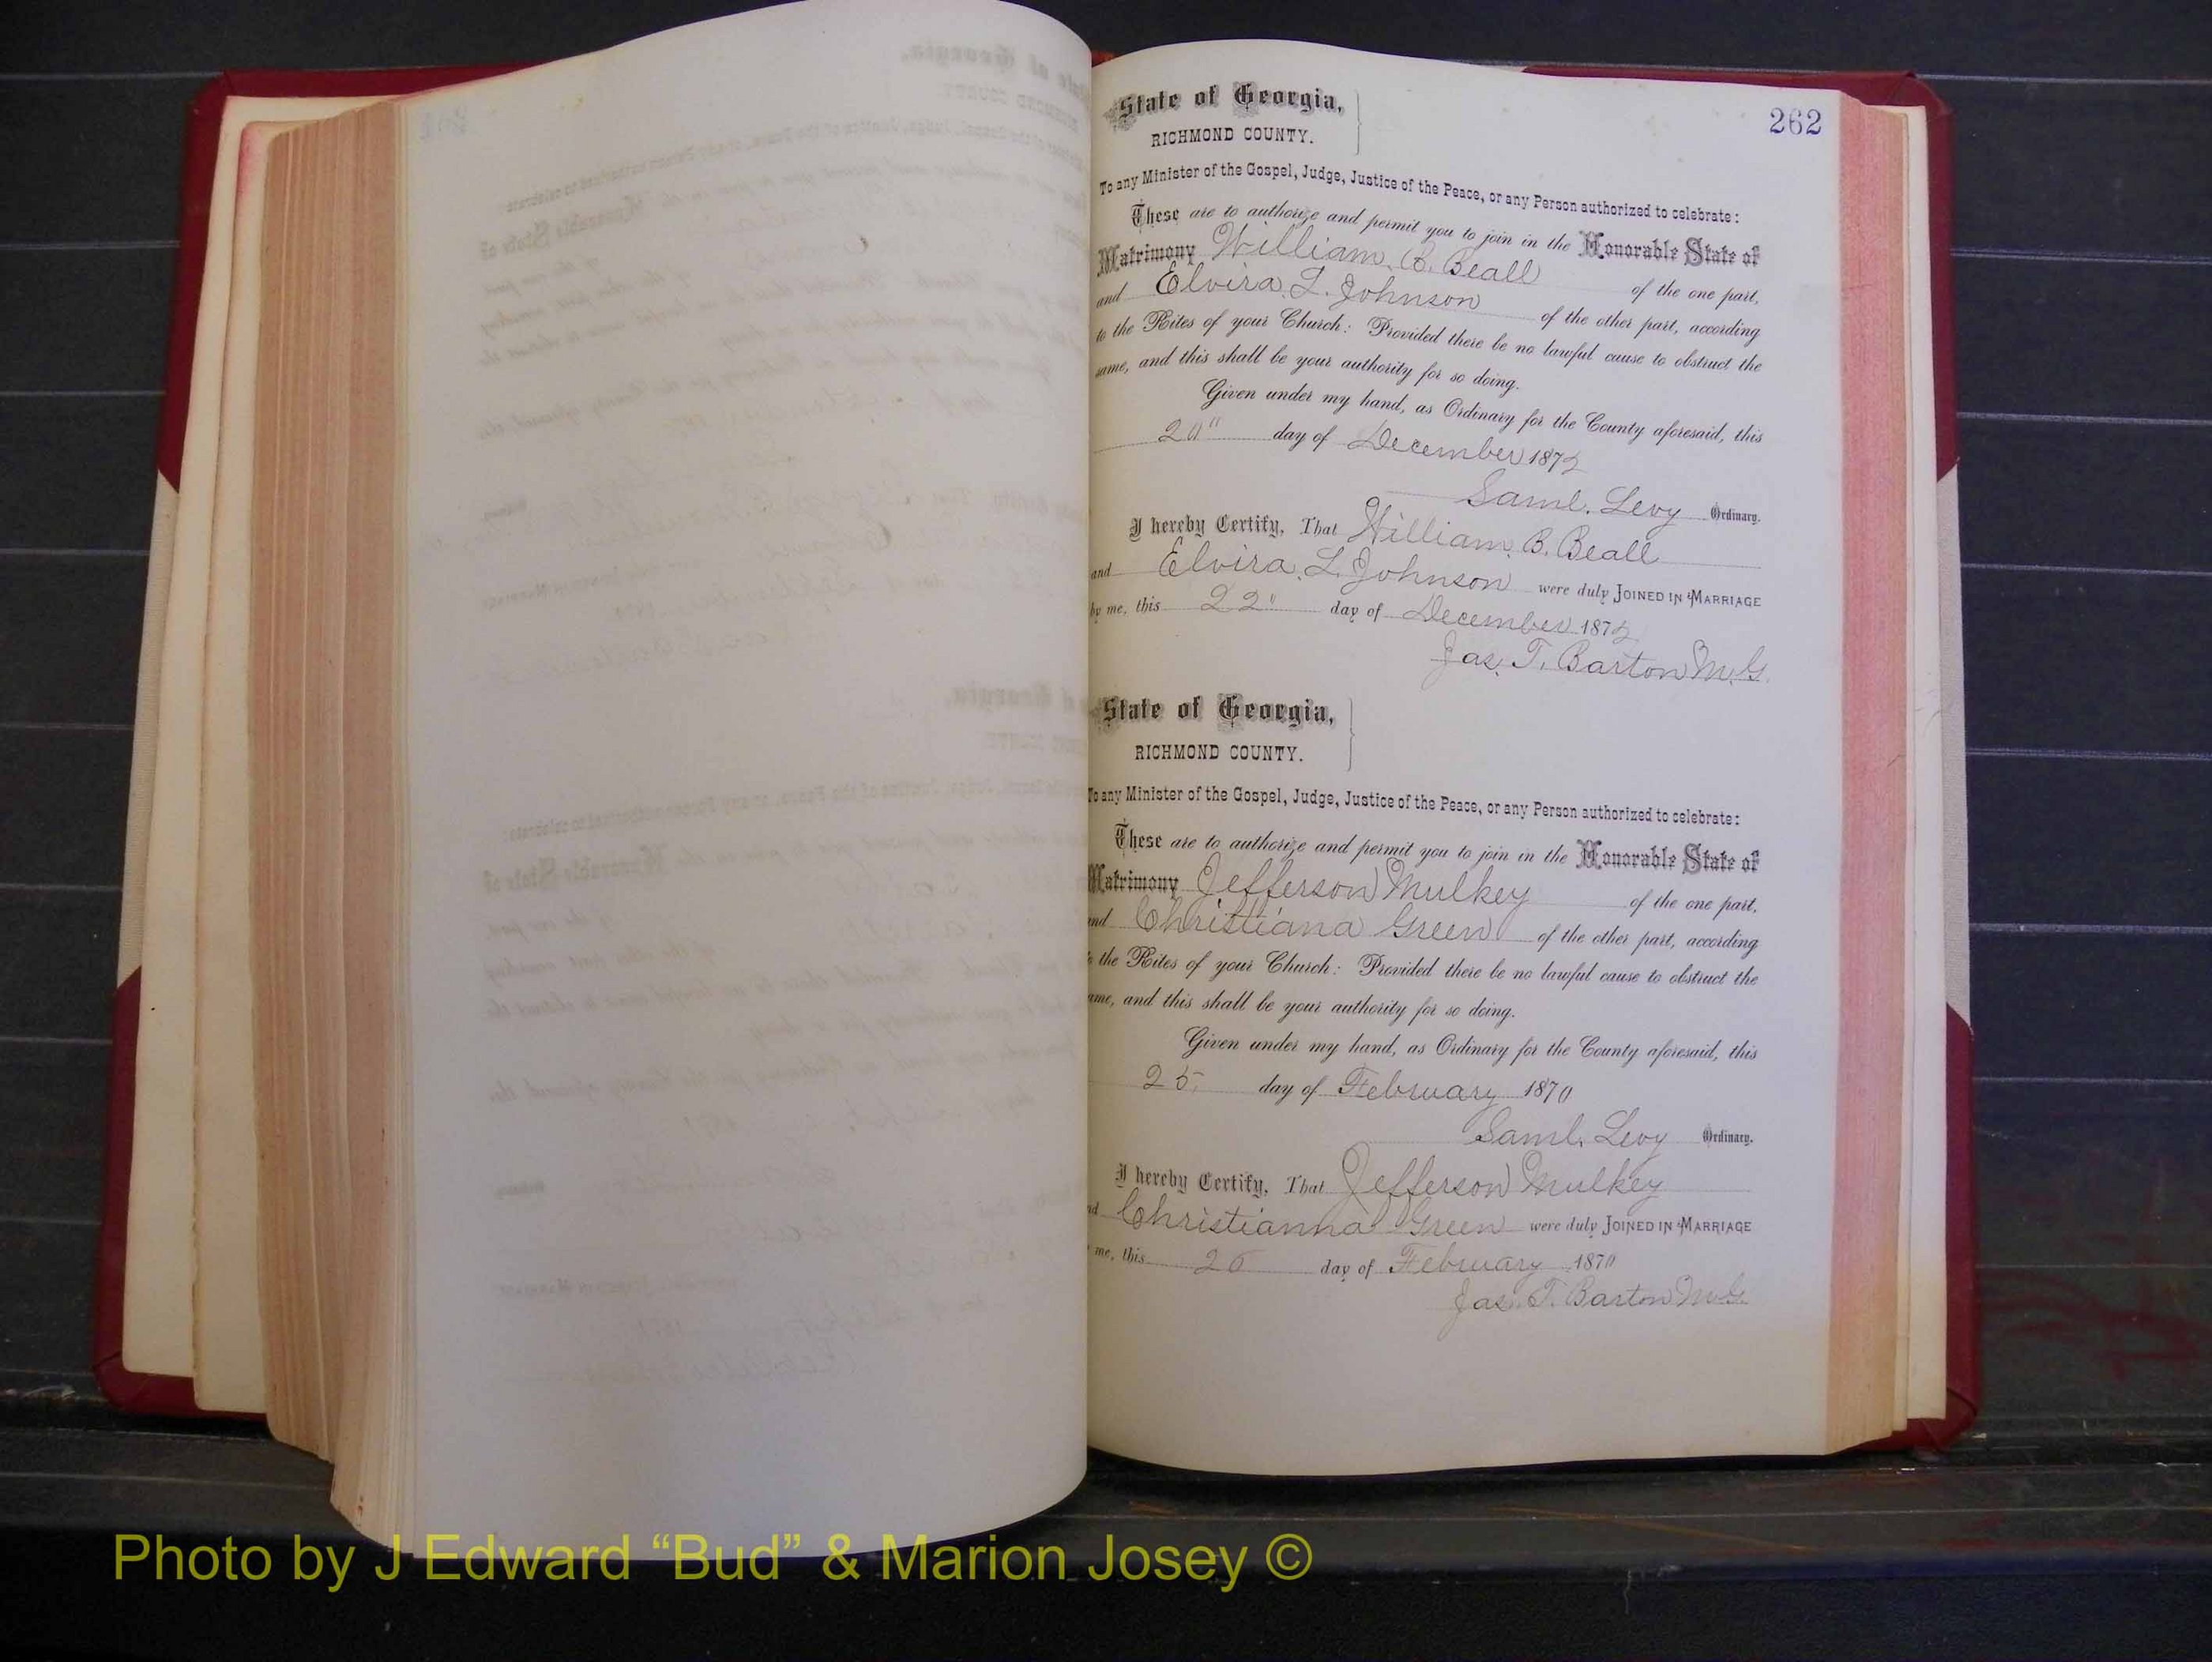 262
State of Georgia,
RICHMOND COUNTY.
To any Minister of the Gospel, Judge, Justice of the Peace, or any Person authorized to celebrate:
These are to authorize and permit you to join in the Honorable State of
Matrimony William B. Beall of the one part,
and Elvira L. Johnson of the other part, according
to the Rites of your Church: Provided there be no lawful cause to obstruct the
same, and this shall be your authority for so doing.
Given under my hand, as Ordinary for the County aforesaid, this
20" day of December 1872
Saml. Levy Ordinary.
I hereby Certify, That William B. Beall
and Elvira L. Johnson were duly JOINED IN MARRIAGE
by me, this 22" day of December 1872
Jas. T. Barton M.G.
State of Georgia,
RICHMOND COUNTY.
To any Minister of the Gospel, Judge, Justice of the Peace, or any Person authorized to celebrate:
These are to authorize and permit you to join in the Honorable State of
Matrimony Jefferson Mulkey of the one part,
and Christiana Green of the other part, according
to the Rites of your Church: Provided there be no lawful cause to obstruct the
ame, and this shall be your authority for so doing.
Given under my hand, as Ordinary for the County aforesaid, this
25 day of February 1870
Saml. Levy Ordinary.
I hereby Certify, That Jefferson Mulkey
nd Christianna Green were duly JOINED IN MARRIAGE
me, this 26 day of February 1870
Jas. T. Barton M.G.
Photo by J Edward “Bud” & Marion Josey ©